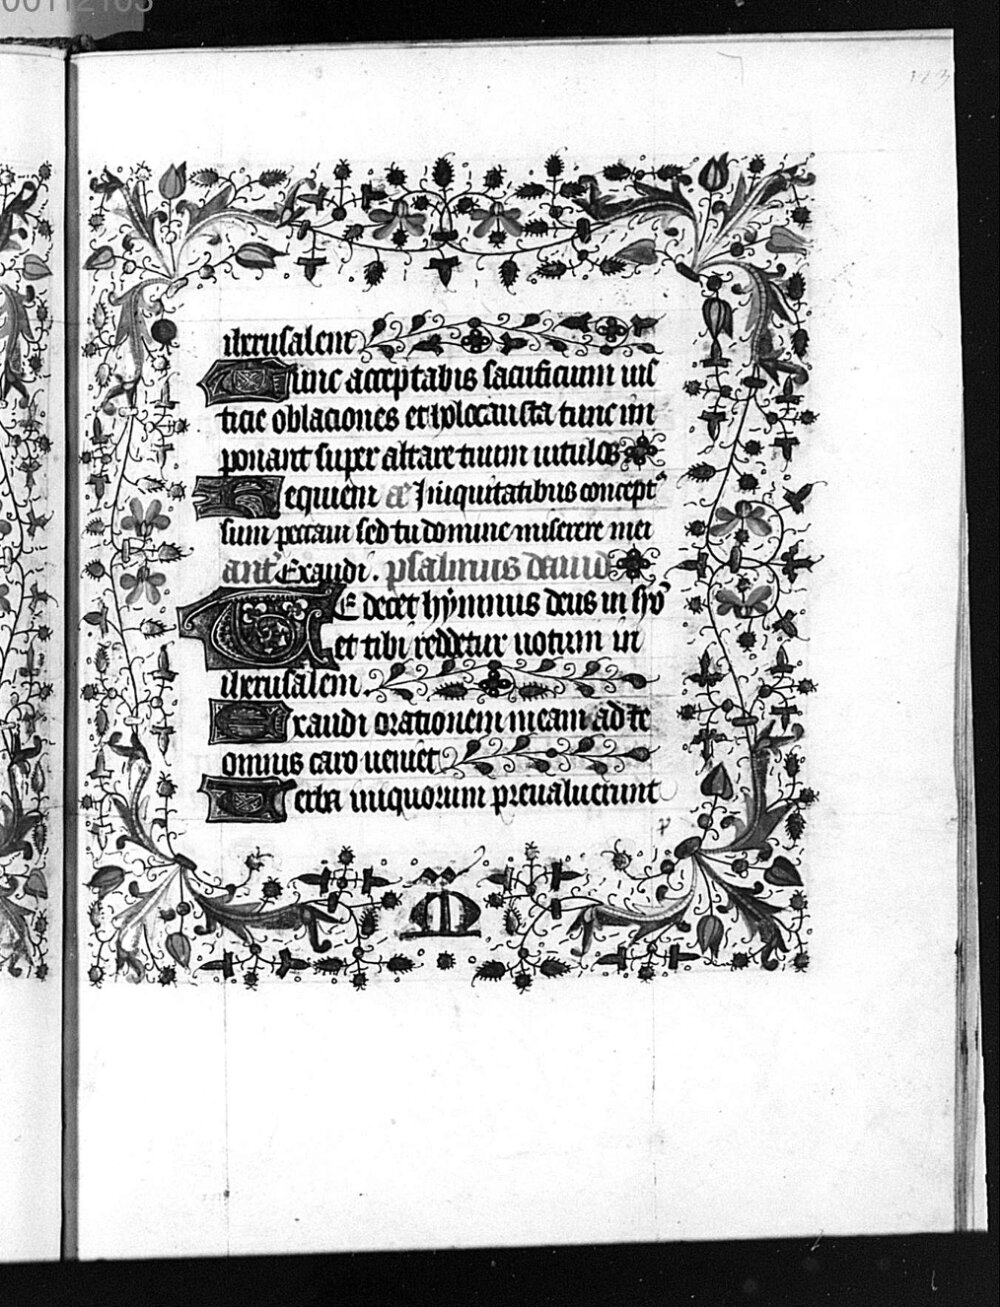 00112103
123
iherusalem
Tunc acceptabis sacrificium ius
ticie oblaciones et holocausta tunc im
ponant super altare tuum uitulos
Requiem Iniquitatibus concept⁹
sum peccaui sed tu domine miserere mei
ant᷑ Exaudi. psalmus dauid
TE decet hẏmnus deus in sẏō
et tibi reddetur uotum in
iherusalem.
Exaudi orationem meam ad te
omnis caro ueniet
Uerba iniquorum preualuerunt
M